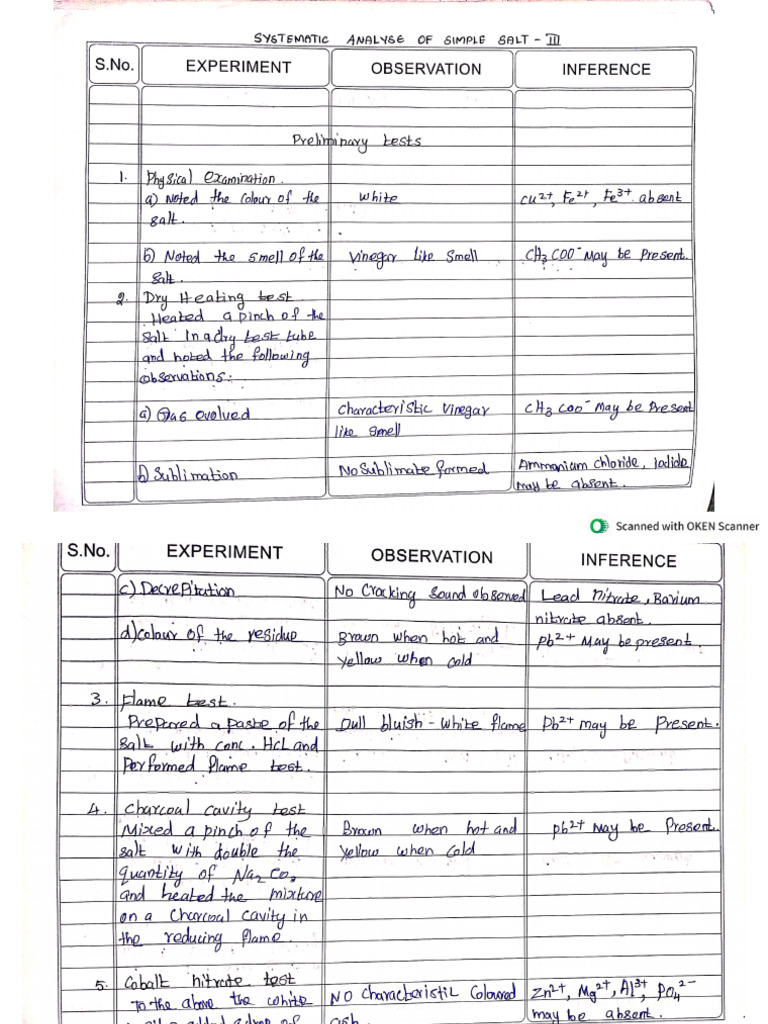 SYSTEMATIC ANALYSE OF SIMPLE SALT - III
S.No. EXPERIMENT OBSERVATION INFERENCE
Preliminary tests
1. Physical Examination.
a) Noted the colour of the white Cu2+, Fe2+, Fe3+ absent
salt.
b) Noted the smell of the Vinegar like smell CH3COO- May be Present.
salt.
2. Dry Heating test
Heated a pinch of the
salt in a dry test tube
and noted the following
observations:
a) Gas evolved Characteristic Vinegar CH3COO- May be Present
like smell
b) Sublimation No Sublimate formed Ammonium chloride, Iodide
may be absent.
Scanned with OKEN Scanner
S.No. EXPERIMENT OBSERVATION INFERENCE
c) Decrepitution No Cracking Sound observed Lead nitrate, Barium
nitrate absent.
d) colour of the residue Brown when hot and Pb2+ May be present.
yellow when cold
3. Flame test.
Prepared a paste of the Dull bluish-white flame Pb2+ may be Present.
salt with conc. HCL and
Performed flame test.
4. Charcoal cavity test
Mixed a pinch of the Brown when hot and Pb2+ May be Present.
salt with double the yellow when cold
quantity of Na2CO3
and heated the mixture
on a Charcoal cavity in
the reducing flame.
5. Cobalt nitrate test
To the above the white No Characteristic Coloured Zn2+, Mg2+, Al3+, PO42-
added a drop of ash. may be absent.